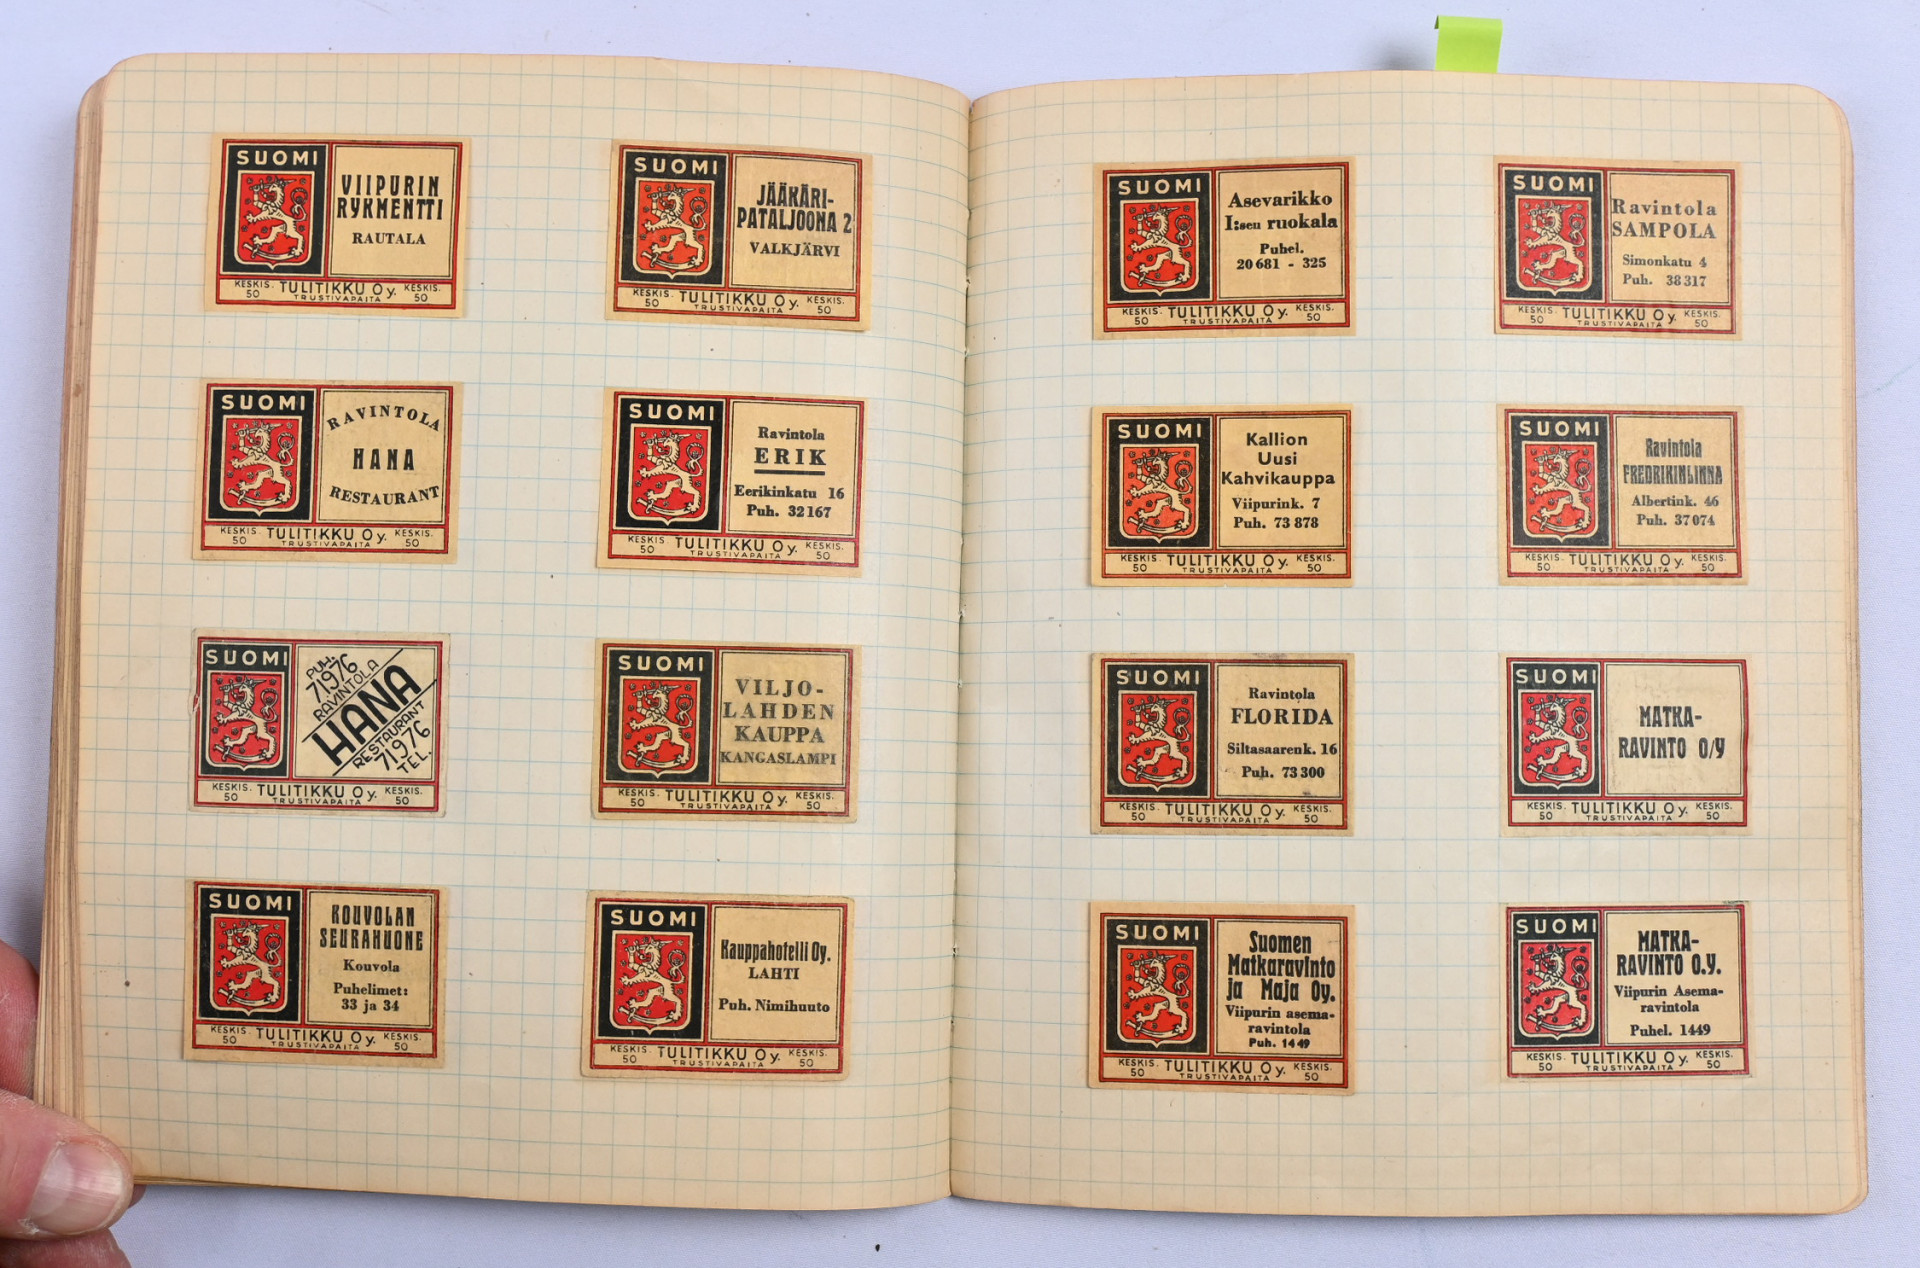 SUOMI
VIIPURIN
RYKMENTTI
RAUTALA
KESKIS. 50 TULITIKKU Oy. KESKIS. 50
TRUSTIVAPAITA
SUOMI
JÄÄKÄRI-
PATALJOONA 2
VALKJÄRVI
KESKIS. 50 TULITIKKU Oy. KESKIS. 50
TRUSTIVAPAITA
SUOMI
RAVINTOLA
HANA
RESTAURANT
KESKIS. 50 TULITIKKU Oy. KESKIS. 50
TRUSTIVAPAITA
SUOMI
Ravintola
ERIK
Eerikinkatu 16
Puh. 32167
KESKIS. 50 TULITIKKU Oy. KESKIS. 50
TRUSTIVAPAITA
SUOMI
PUH.
71976
RAVINTOLA
HANA
RESTAURANT
71976
TEL.
KESKIS. 50 TULITIKKU Oy. KESKIS. 50
TRUSTIVAPAITA
SUOMI
VILJO-
LAHDEN
KAUPPA
KANGASLAMPI
KESKIS. 50 TULITIKKU Oy. KESKIS. 50
TRUSTIVAPAITA
SUOMI
KOUVOLAN
SEURAHUONE
Kouvola
Puhelimet:
33 ja 34
KESKIS. 50 TULITIKKU Oy. KESKIS. 50
TRUSTIVAPAITA
SUOMI
Kauppahotelli Oy.
LAHTI
Puh. Nimihuuto
KESKIS. 50 TULITIKKU Oy. KESKIS. 50
TRUSTIVAPAITA
SUOMI
Asevarikko
I:sen ruokala
Puhel.
20681 - 325
KESKIS. 50 TULITIKKU Oy. KESKIS. 50
TRUSTIVAPAITA
SUOMI
Ravintola
SAMPOLA
Simonkatu 4
Puh. 38317
KESKIS. 50 TULITIKKU Oy. KESKIS. 50
TRUSTIVAPAITA
SUOMI
Kallion
Uusi
Kahvikauppa
Viipurink. 7
Puh. 73 878
KESKIS. 50 TULITIKKU Oy. KESKIS. 50
TRUSTIVAPAITA
SUOMI
Ravintola
FREDRIKINLINNA
Albertink. 46
Puh. 37074
KESKIS. 50 TULITIKKU Oy. KESKIS. 50
TRUSTIVAPAITA
SUOMI
Ravintola
FLORIDA
Siltasaarenk. 16
Puh. 73300
KESKIS. 50 TULITIKKU Oy. KESKIS. 50
TRUSTIVAPAITA
SUOMI
MATKA-
RAVINTO O/Y
KESKIS. 50 TULITIKKU Oy. KESKIS. 50
TRUSTIVAPAITA
SUOMI
Suomen
Matkaravinto
ja Maja Oy.
Viipurin asema-
ravintola
Puh. 1449
KESKIS. 50 TULITIKKU Oy. KESKIS. 50
TRUSTIVAPAITA
SUOMI
MATKA-
RAVINTO O.Y.
Viipurin Asema-
ravintola
Puhel. 1449
KESKIS. 50 TULITIKKU Oy. KESKIS. 50
TRUSTIVAPAITA